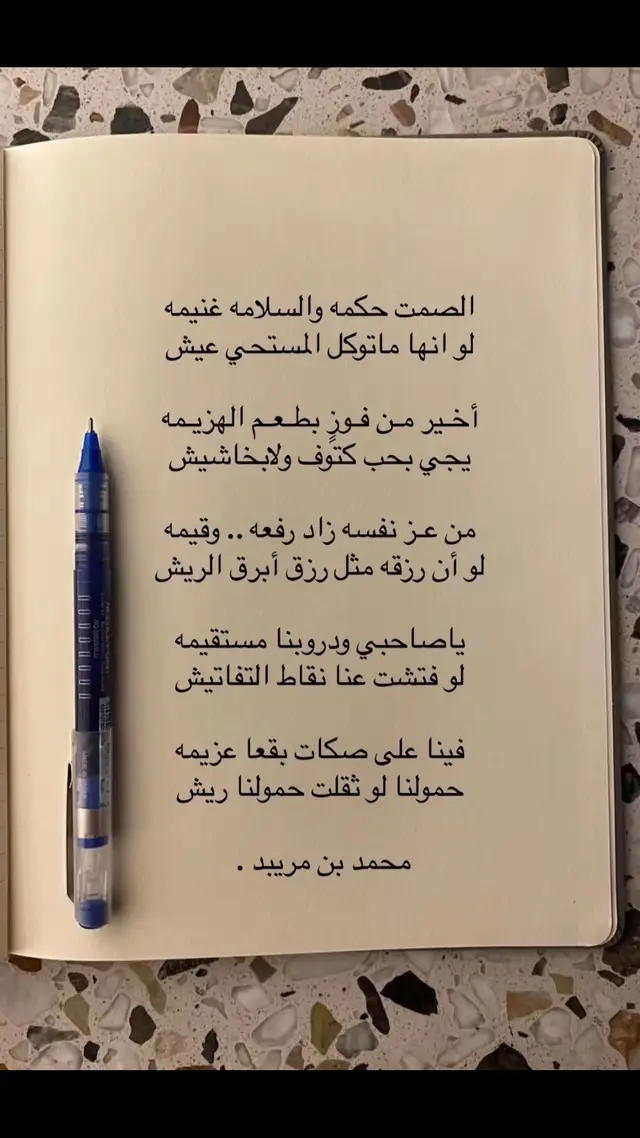 الصمت حكمه والسلامه غنيمه
لو انها ماتوكل المستحي عيش
أخير من فوزٍ بطعم الهزيمه
يجي بحب كتوف ولابخاشيش
من عز نفسه زاد رفعه .. وقيمه
لو أن رزقه مثل رزق أبرق الريش
ياصاحبي ودروبنا مستقيمه
لو فتشت عنا نقاط التفاتيش
فينا على صكات بقعا عزيمه
حمولنا لو ثقلت حمولنا ريش
محمد بن مريبد .